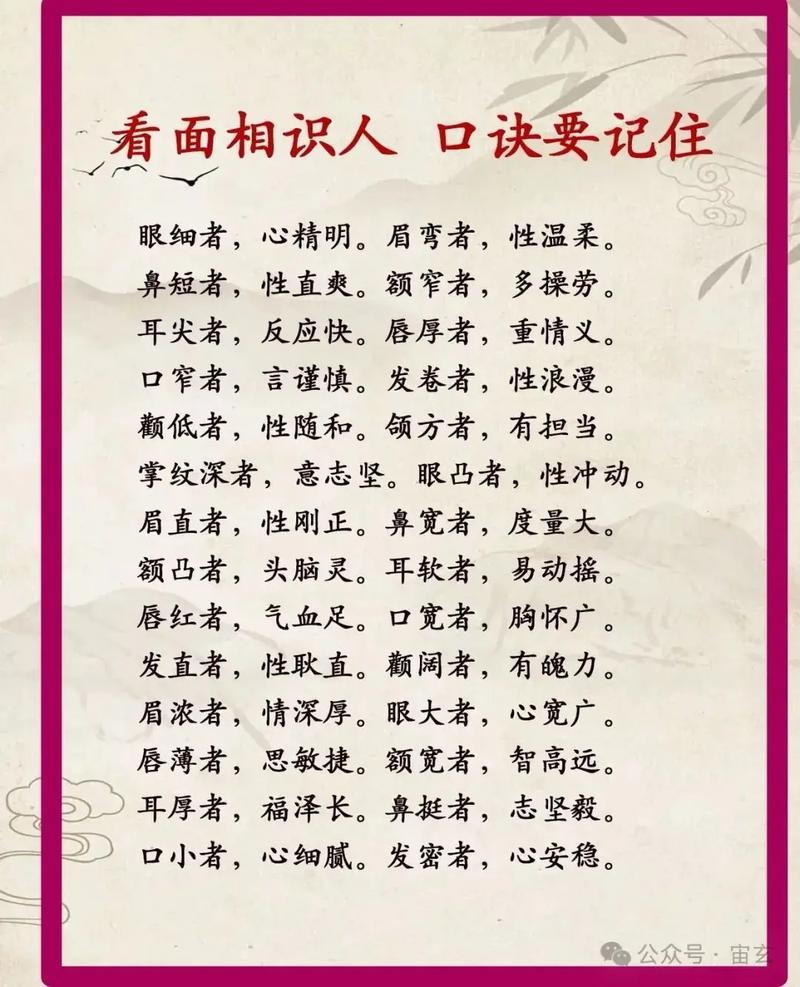 看面相识人 口诀要记住
眼细者，心精明。眉弯者，性温柔。
鼻短者，性直爽。额窄者，多操劳。
耳尖者，反应快。唇厚者，重情义。
口窄者，言谨慎。发卷者，性浪漫。
颧低者，性随和。颌方者，有担当。
掌纹深者，意志坚。眼凸者，性冲动。
眉直者，性刚正。鼻宽者，度量大。
额凸者，头脑灵。耳软者，易动摇。
唇红者，气血足。口宽者，胸怀广。
发直者，性耿直。颧阔者，有魄力。
眉浓者，情深厚。眼大者，心宽广。
唇薄者，思敏捷。额宽者，智高远。
耳厚者，福泽长。鼻挺者，志坚毅。
口小者，心细腻。发密者，心安稳。
公众号·宙玄